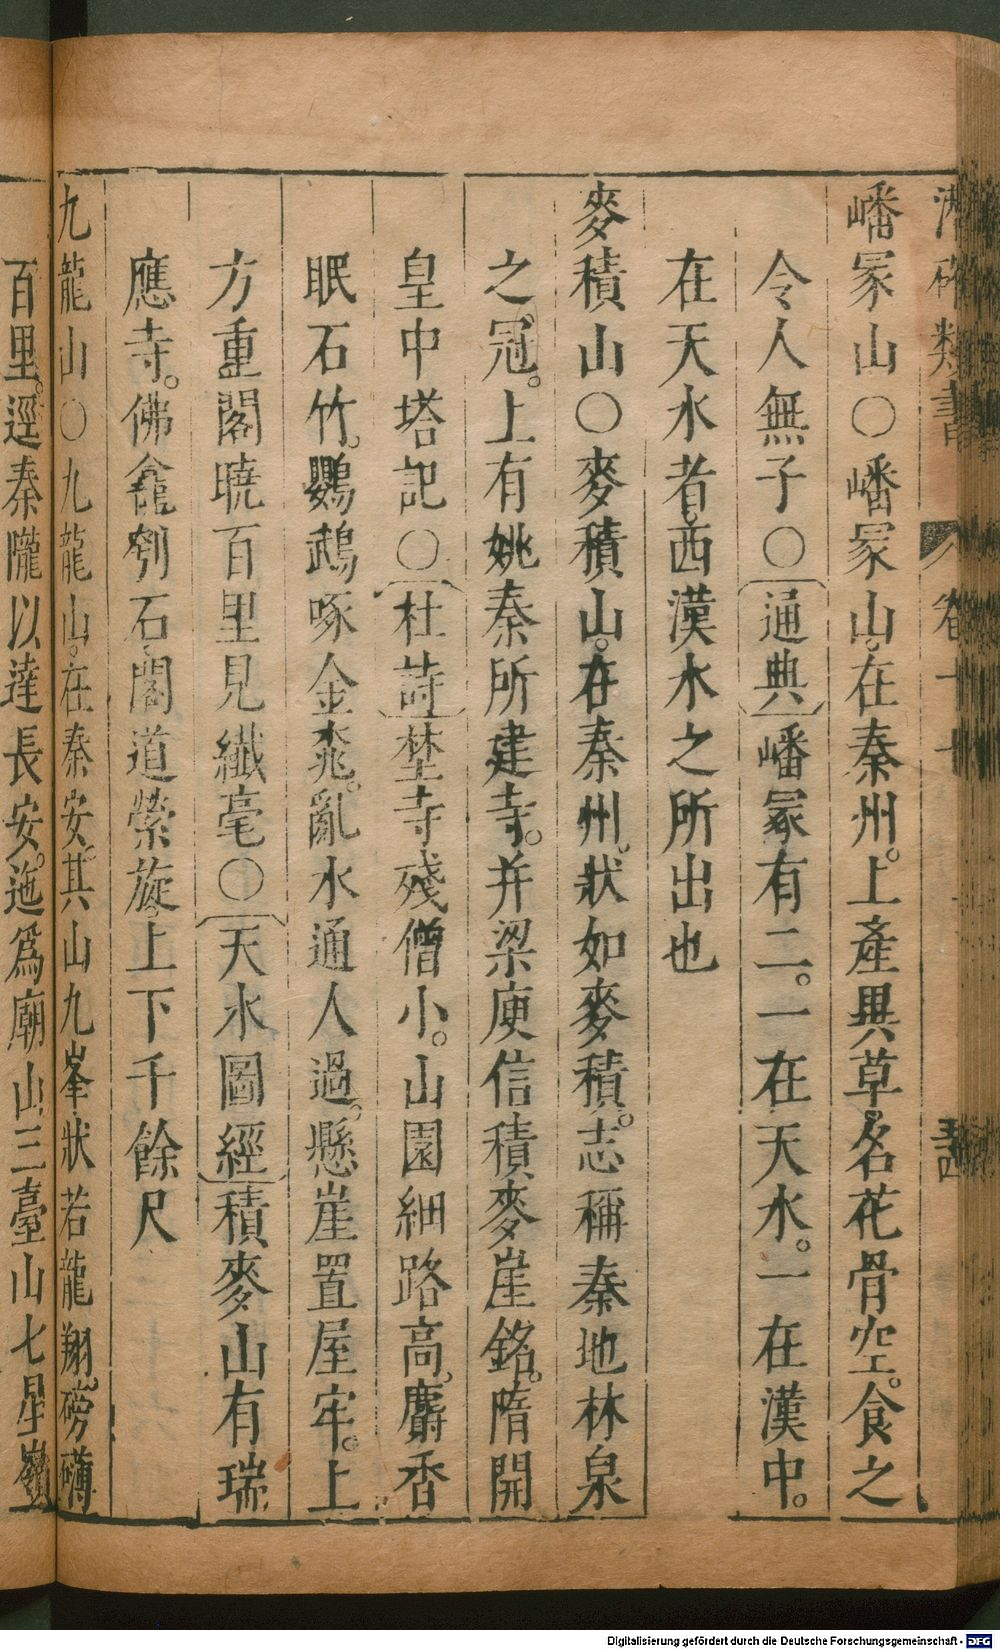 潛確類書 卷二十 五四
嶓冡山○嶓冡山。在秦州。上產異草名花骨空。食之
令人無子○通典嶓冡有二。一在天水。一在漢中。
在天水者。西漢水之所出也
麥積山○麥積山。在秦州。狀如麥積。志稱秦地林泉
之冠。上有姚秦所建寺。并梁庾信積麥崖銘。隋開
皇中塔記○杜詩埜寺殘僧小。山園細路高。麝香
眠石竹。鸚鵡啄金桃。亂水通人過。懸崖置屋牢。上
方重閣曉百里見纖毫○天水圖經積麥山有瑞
應寺。佛龕刳石閣道縈旋。上下千餘尺
九龍山○九龍山。在秦安。其山九峯狀若龍翔。磅礴
百里。逕秦隴以達長安。迤爲廟山三臺山七星嶺
Digitalisierung gefördert durch die Deutsche Forschungsgemeinschaft - DFG